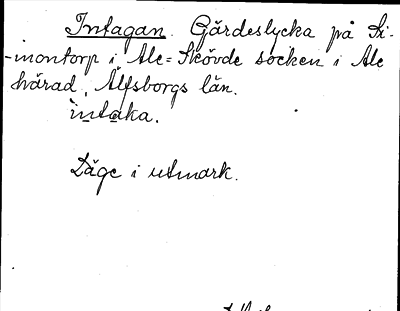 Intagan. Gärdeslycka på Si-
-montorp i Ale-Skövde socken i Ale
härad, Älfsborgs län.
intaka.
Läge i utmark.